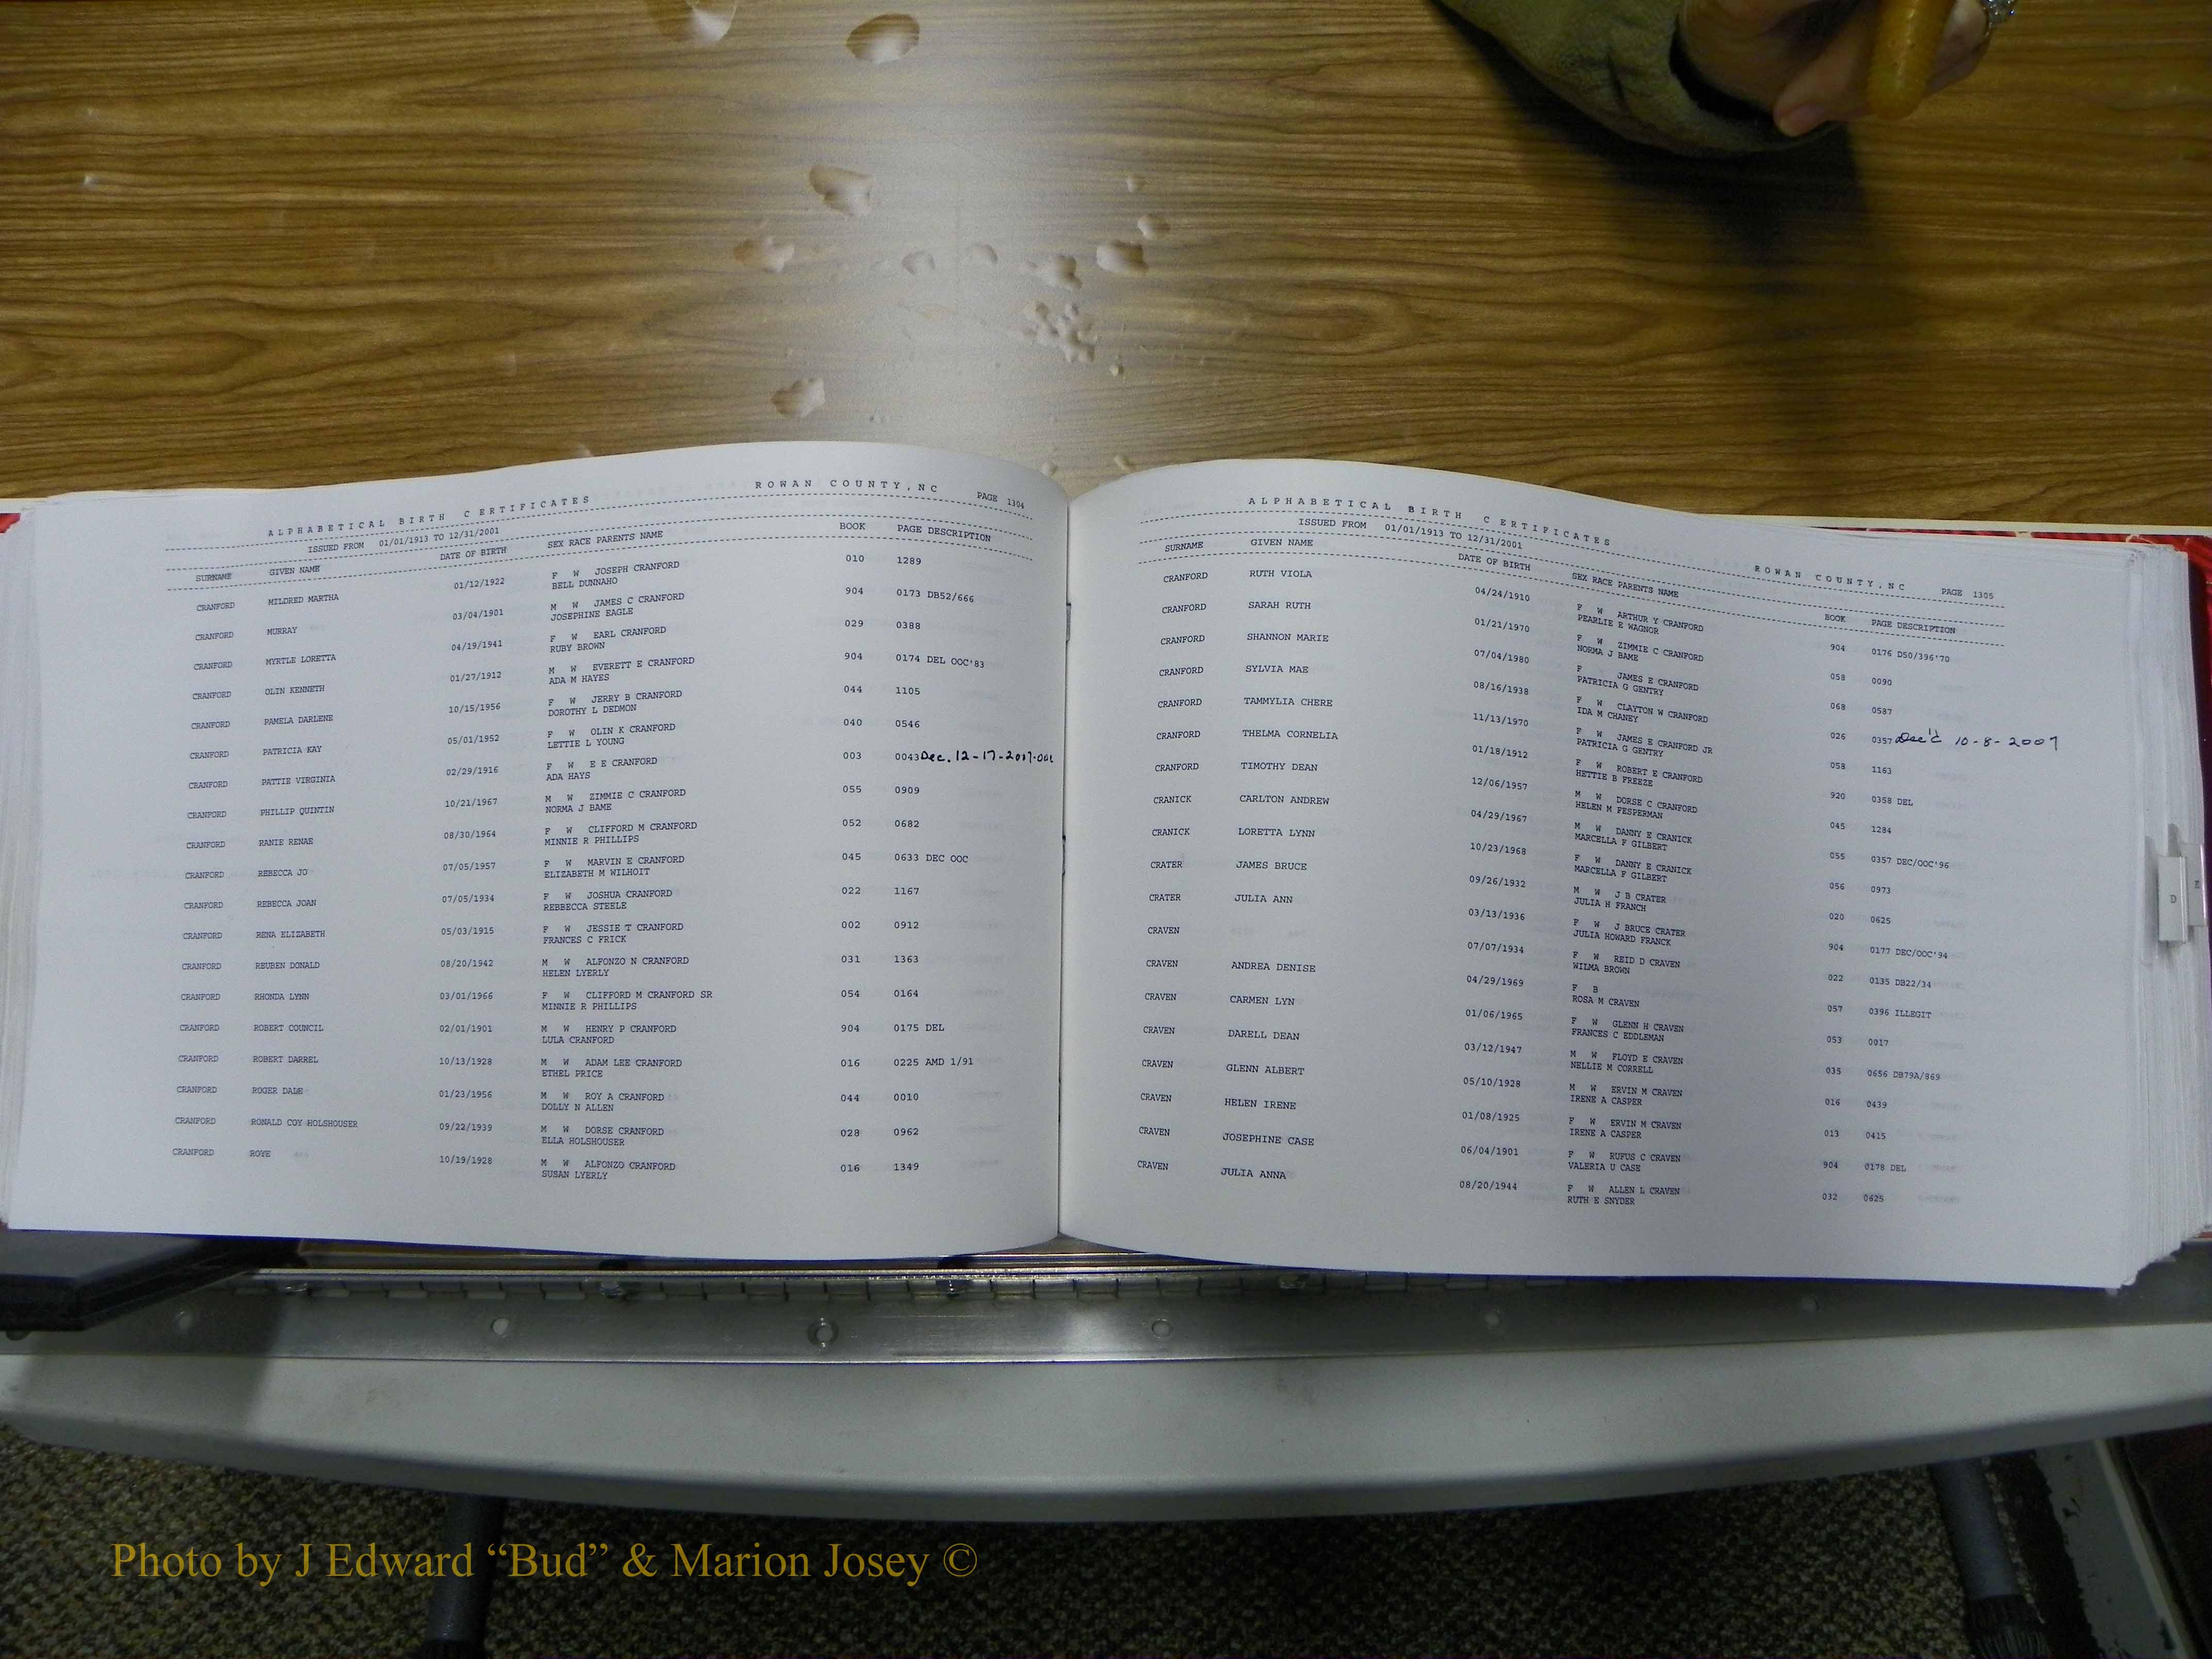 ALPHABETICAL BIRTH CERTIFICATES ROWAN COUNTY, NC PAGE 1304
ISSUED FROM 01/01/1913 TO 12/31/2001
SURNAME GIVEN NAME DATE OF BIRTH SEX RACE PARENTS NAME BOOK PAGE DESCRIPTION
CRANFORD MILDRED MARTHA 01/12/1922 F W JOSEPH CRANFORD 010 1289
BELL DUNNAHO
CRANFORD MURRAY 03/04/1901 M W JAMES C CRANFORD 904 0173 DB52/666
JOSEPHINE EAGLE
CRANFORD MYRTLE LORETTA 04/19/1941 F W EARL CRANFORD 029 0388
RUBY BROWN
CRANFORD OLIN KENNETH 01/27/1912 M W EVERETT E CRANFORD 904 0174 DEL OOC'83
ADA M HAYES
CRANFORD PAMELA DARLENE 10/15/1956 F W JERRY B CRANFORD 044 1105
DOROTHY L DEDMON
CRANFORD PATRICIA KAY 05/01/1952 F W OLIN K CRANFORD 040 0546
LETTIE L YOUNG
CRANFORD PATTIE VIRGINIA 02/29/1916 F W E E CRANFORD 003 0043 Dec. 12-17-2007-
ADA HAYS
CRANFORD PHILLIP QUINTIN 10/21/1967 M W ZIMMIE C CRANFORD 055 0909
NORMA J BAME
CRANFORD RANIE RENAE 08/30/1964 F W CLIFFORD M CRANFORD 052 0682
MINNIE R PHILLIPS
CRANFORD REBECCA JO 07/05/1957 F W MARVIN E CRANFORD 045 0633 DEC OOC
ELIZABETH M WILHOIT
CRANFORD REBECCA JOAN 07/05/1934 F W JOSHUA CRANFORD 022 1167
REBBECCA STEELE
CRANFORD RENA ELIZABETH 05/03/1915 F W JESSIE T CRANFORD 002 0912
FRANCES C FRICK
CRANFORD REUBEN DONALD 08/20/1942 M W ALFONZO N CRANFORD 031 1363
HELEN LYERLY
CRANFORD RHONDA LYNN 03/01/1966 F W CLIFFORD M CRANFORD SR 054 0164
MINNIE R PHILLIPS
CRANFORD ROBERT COUNCIL 02/01/1901 M W HENRY P CRANFORD 904 0175 DEL
LULA CRANFORD
CRANFORD ROBERT DARREL 10/13/1928 M W ADAM LEE CRANFORD 016 0225 AMD 1/91
ETHEL PRICE
CRANFORD ROGER DALE 01/23/1956 M W ROY A CRANFORD 044 0010
DOLLY N ALLEN
CRANFORD RONALD COY HOLSHOUSER 09/22/1939 M W DORSE CRANFORD 028 0962
ELLA HOLSHOUSER
CRANFORD ROYE 10/19/1928 M W ALFONZO CRANFORD 016 1349
SUSAN LYERLY
ALPHABETICAL BIRTH CERTIFICATES ROWAN COUNTY, NC PAGE 1305
ISSUED FROM 01/01/1913 TO 12/31/2001
SURNAME GIVEN NAME DATE OF BIRTH SEX RACE PARENTS NAME BOOK PAGE DESCRIPTION
CRANFORD RUTH VIOLA 04/24/1910 F W ARTHUR Y CRANFORD 904 0176 D50/396'70
PEARLIE E WAGNOR
CRANFORD SARAH RUTH 01/21/1970 F W ZIMMIE C CRANFORD 058 0090
NORMA J BAME
CRANFORD SHANNON MARIE 07/04/1980 F JAMES E CRANFORD 068 0587
PATRICIA G GENTRY
CRANFORD SYLVIA MAE 08/16/1938 F W CLAYTON W CRANFORD 026 0357 Dec'd 10-8-2007
IDA M CHANEY
CRANFORD TAMMYLIA CHERE 11/13/1970 F W JAMES E CRANFORD JR 058 1163
PATRICIA G GENTRY
CRANFORD THELMA CORNELIA 01/18/1912 F W ROBERT E CRANFORD 920 0358 DEL
HETTIE B FREEZE
CRANFORD TIMOTHY DEAN 12/06/1957 M W DORSE C CRANFORD 045 1284
HELEN M FESPERMAN
CRANICK CARLTON ANDREW 04/29/1967 M W DANNY E CRANICK 055 0357 DEC/OOC'96
MARCELLA F GILBERT
CRANICK LORETTA LYNN 10/23/1968 F W DANNY E CRANICK 056 0973
MARCELLA F GILBERT
CRATER JAMES BRUCE 09/26/1932 M W J B CRATER 020 0625
JULIA H FRANCH
CRATER JULIA ANN 03/13/1936 F W J BRUCE CRATER 904 0177 DEC/OOC'94
JULIA HOWARD FRANCK
CRAVEN 07/07/1934 F W REID D CRAVEN 022 0135 DB22/34
WILMA BROWN
CRAVEN ANDREA DENISE 04/29/1969 F B 057 0396 ILLEGIT
ROSA M CRAVEN
CRAVEN CARMEN LYN 01/06/1965 F W GLENN H CRAVEN 053 0017
FRANCES C EDDLEMAN
CRAVEN DARELL DEAN 03/12/1947 M W FLOYD E CRAVEN 035 0656 DB79A/869
NELLIE M CORRELL
CRAVEN GLENN ALBERT 05/10/1928 M W ERVIN M CRAVEN 016 0439
IRENE A CASPER
CRAVEN HELEN IRENE 01/08/1925 F W ERVIN M CRAVEN 013 0415
IRENE A CASPER
CRAVEN JOSEPHINE CASE 06/04/1901 F W RUFUS C CRAVEN 904 0178 DEL
VALERIA U CASE
CRAVEN JULIA ANNA 08/20/1944 F W ALLEN L CRAVEN 032 0625
RUTH E SNYDER
D
Photo by J Edward “Bud” & Marion Josey ©